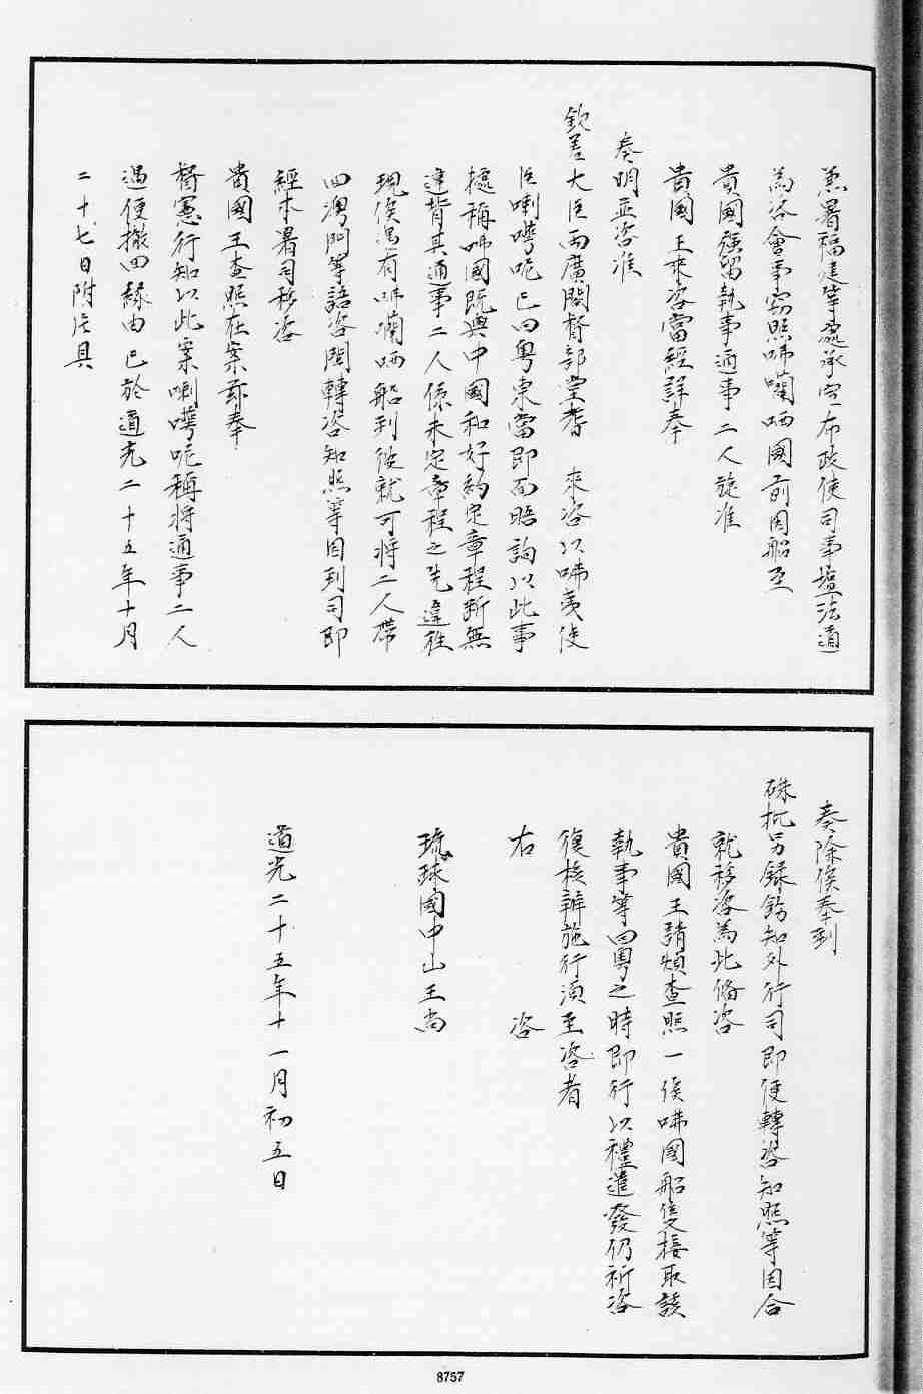 兼署福建等處承宣布政使司事塩法道
為咨會事窃照咈囒哂國前因船至
貴國強留執事通事二人旋准
貴國王來咨當經詳奉
奏明並咨准
欽差大臣兩廣閣督部堂耆 來咨以咈夷使
臣喇嘮呢已囘粵東當即面晤詢以此事
據稱咈國既與中國和好約定章程斷無
違背其通事二人係未定章程之先違往
現俟另有咈囒哂船到彼就可將二人帶
囘澳門等語咨閩轉咨知照等因到司即
經本署司移咨
貴國王查照在案茲奉
督憲行知以此案喇嘮呢稱將通事二人
遇便撤囘緣由已於道光二十五年十月
二十七日附片具
奏除俟奉到
硃批另錄飭知外行司即便轉咨知照等因合
就移咨為此備咨
貴國王請煩查照一俟咈國船隻接取該
執事等囘粵之時即行以禮遣發仍祈咨
復核辦施行須至咨者
右 咨
琉球國中山王尚
道光二十五年十一月初五日
8757